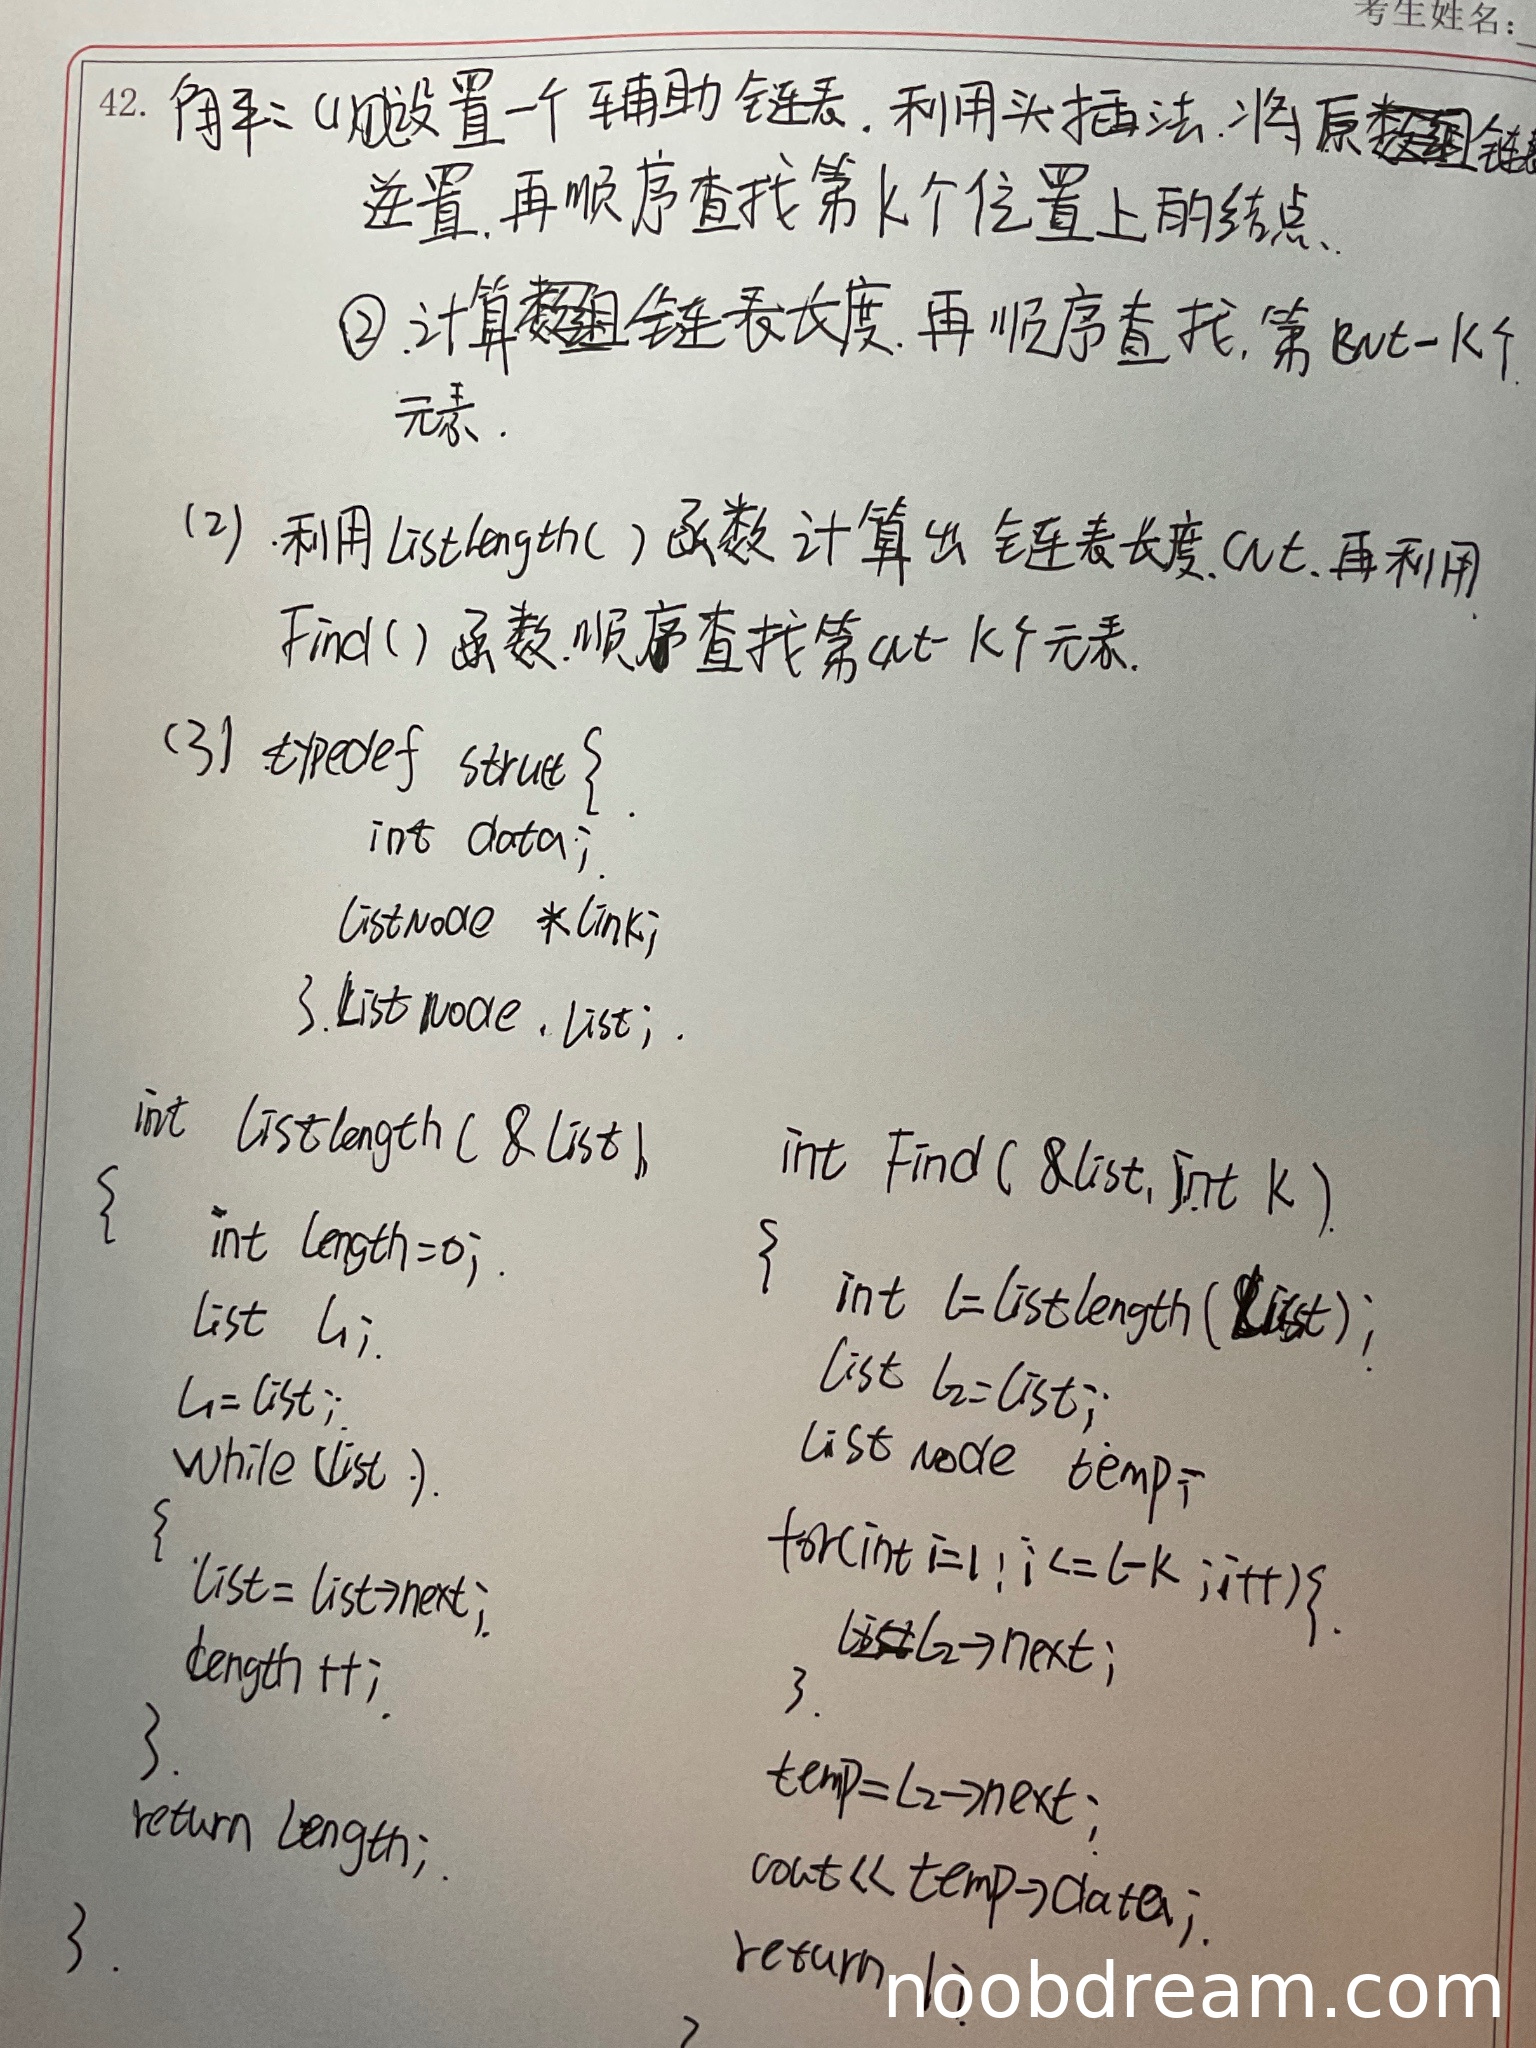 考生姓名:
42. 解: (1)①设置一个辅助链表. 利用头插法. 将原链表
逆置. 再顺序查找第k个位置上的结点.
②.计算链表长度. 再顺序查找. 第cnt-k个
元素.
(2) .利用listlength( )函数计算出链表长度.cnt. 再利用
Find( )函数.顺序查找第cnt-k个元素.
(3) typedef struct{
int data;
listNode *link;
}.ListNode . list;
int listlength( &list)
{
int length=0;
list L1;
L1=list;
while (list)
{
list= list->next;
length++;
}.
return length;
}.
int Find( &list, int k)
{
int l=listlength(list);
list L2=list;
listNode temp;
for(int i=1; i<=l-k ;i++){
L2->next;
}.
temp=L2->next;
cout<< temp->data;
return 1;
}
noobdream.com